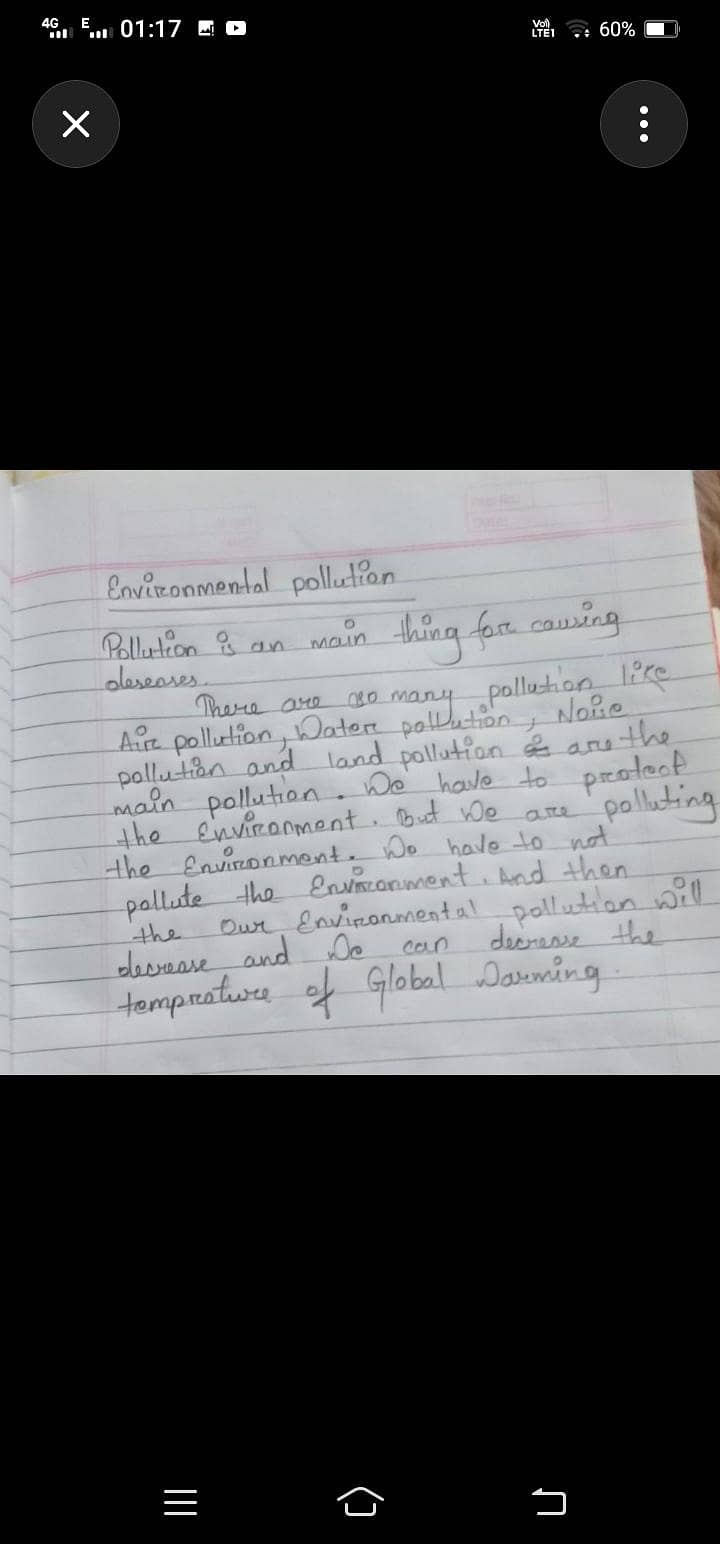 4G E 01:17 Vo) LTE1 60%
Environmental pollution
Pollution is an main thing for causing
deseases.
There are so many pollution like
Air pollution, Water pollution, Noise
pollution and land pollution are the
main pollution. We have to protect
the Environment. But We are polluting
the Environment. We have to not
pollute the Environment. And then
the Our Environmental pollution will
decrease and We can decrease the
temprature of Global Warming.